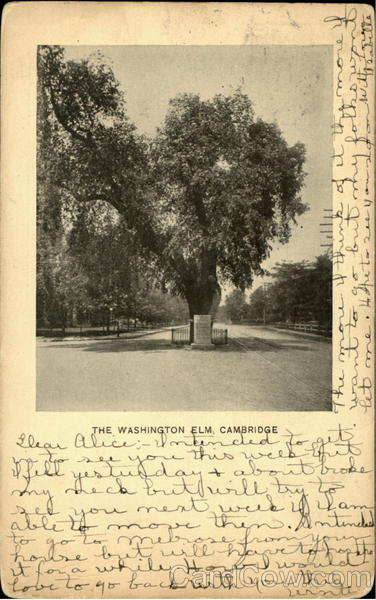 THE WASHINGTON ELM, CAMBRIDGE
Dear Alice:- Intended to get
up to see you this week but
I fell yesterday & about broke
my neck but will try to
see you next week if I am
able to move then. Intended
to go to melrose from your
house but will have to
it for a while How I would
love to go back with you the
The more I think of it the more I
want to go but my folks
let me. Hope to see you
CardCow.com